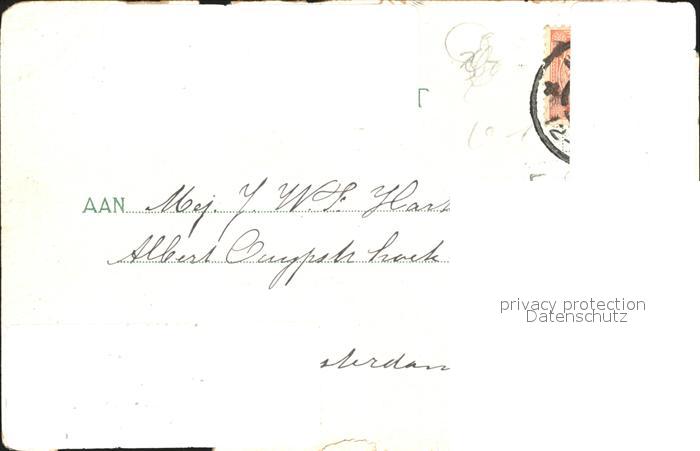 AAN Mej. J. W. F. Hart
Albert Cuypstr hoek
privacy protection
Datenschutz
sterdam